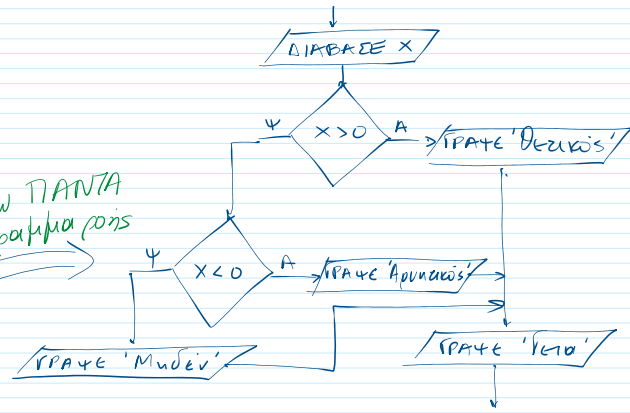 ΔΙΑΒΑΣΕ Χ
Ψ
Χ > 0
Α
ΓΡΑΨΕ 'Θετικός'
ΠΑΝΤΑ
ροής
Ψ
Χ < 0
Α
ΓΡΑΨΕ 'Αρνητικός'
ΓΡΑΨΕ 'Μηδέν'
ΓΡΑΨΕ 'Γεια'